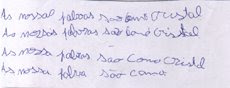 As nossas palvras são como Cristal
As nossas palvras são como Cristal
As nossa palvras são como Cristal
As nossa palvra são como